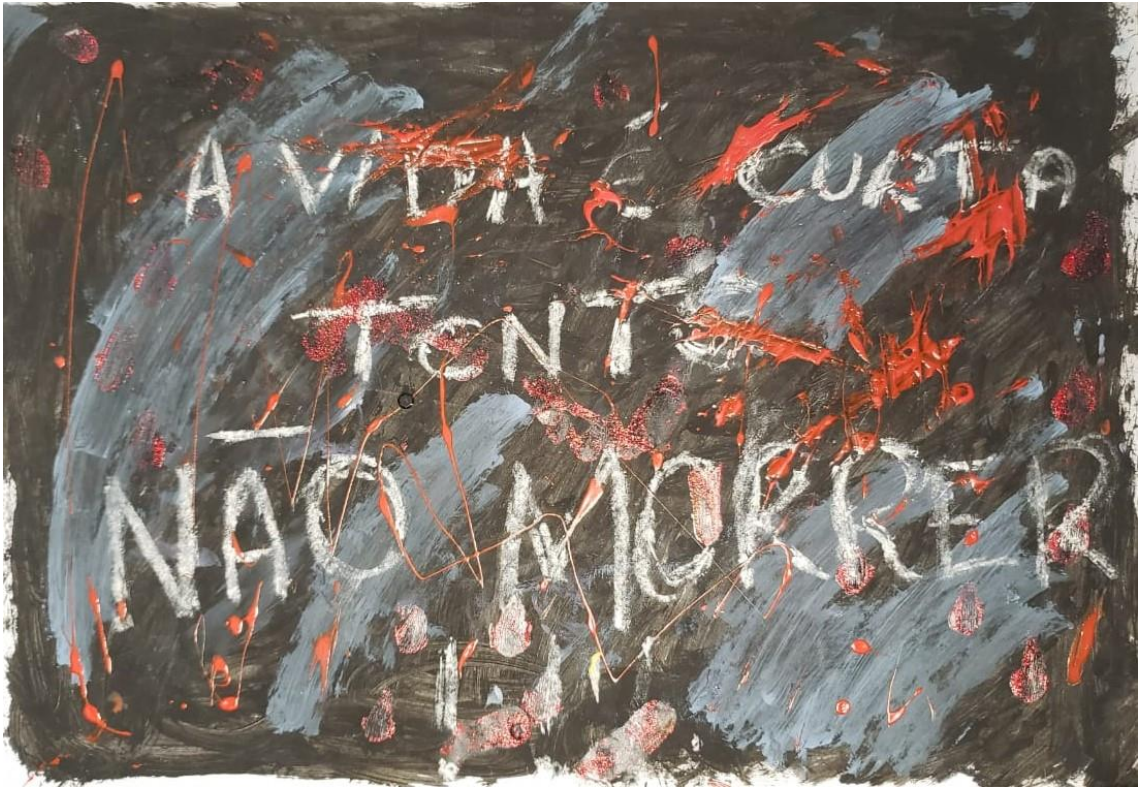 A VIDA É CURTA
TENTE
NÃO MORRER